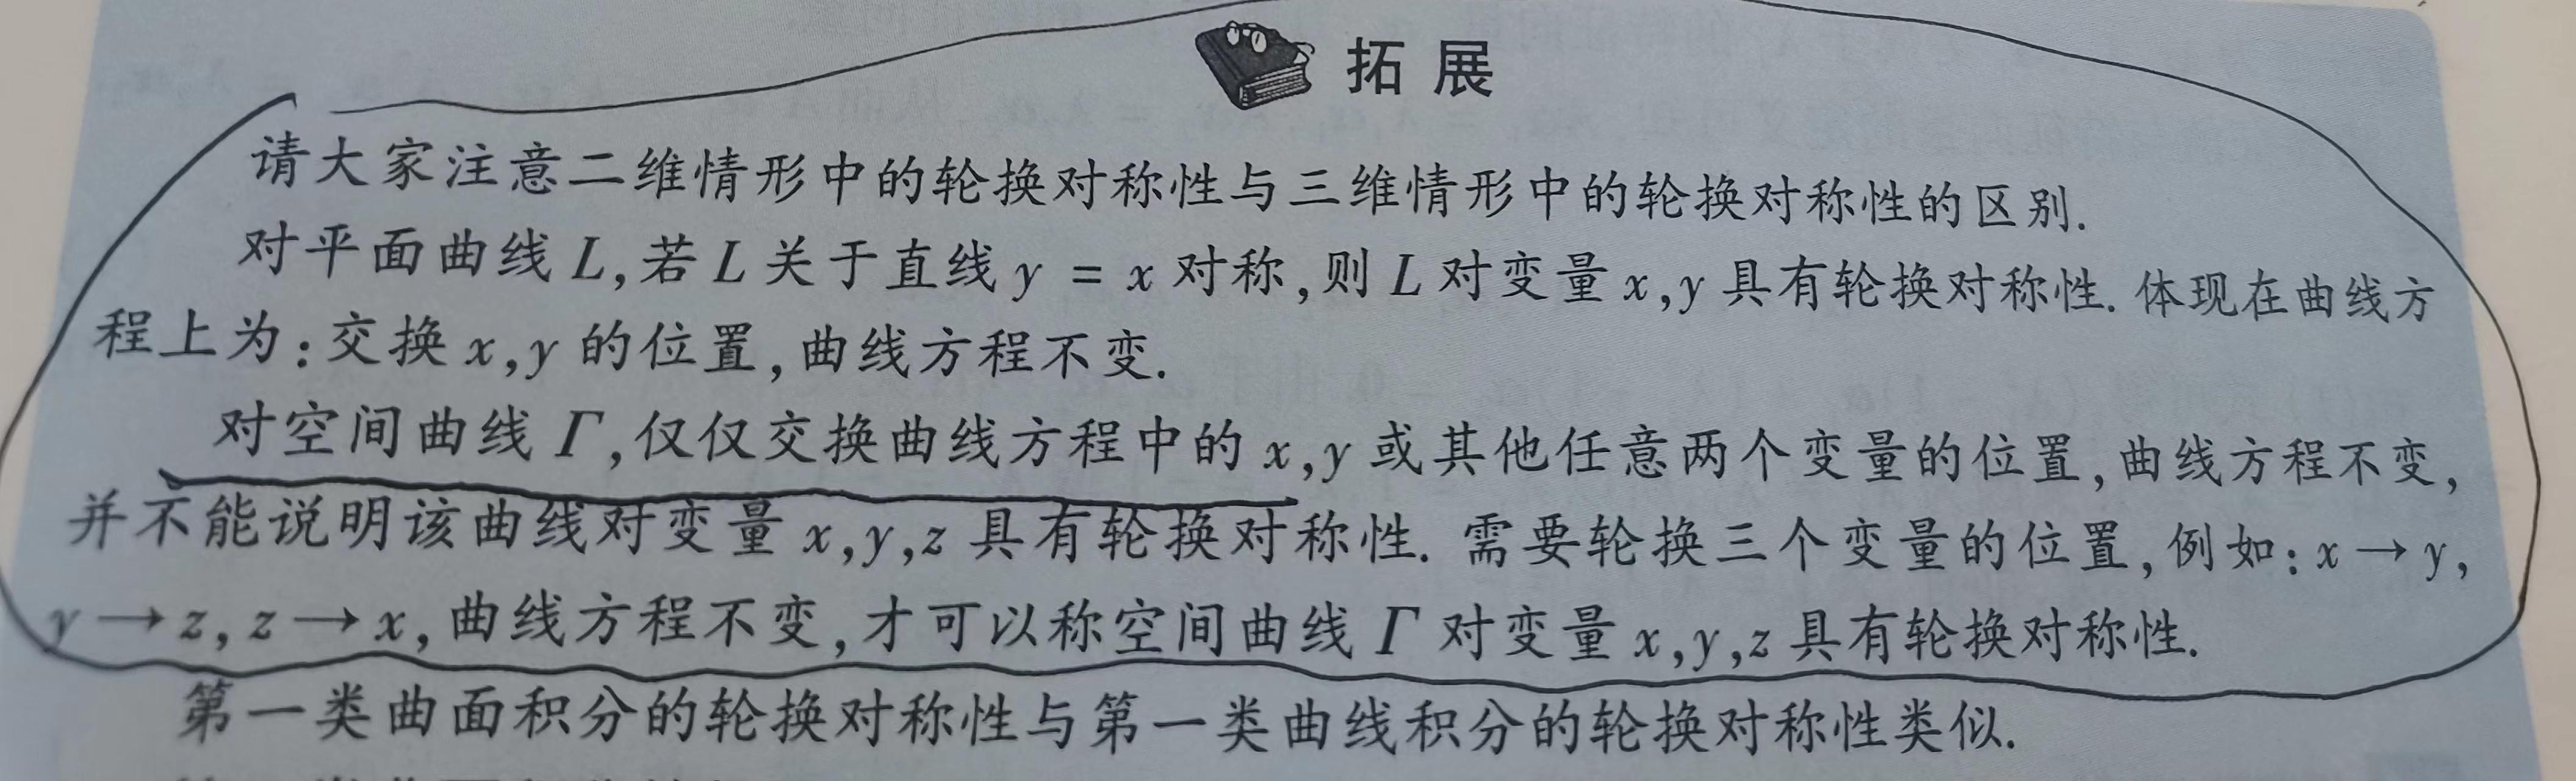 拓展
请大家注意二维情形中的轮换对称性与三维情形中的轮换对称性的区别.
对平面曲线 L,若 L 关于直线 y = x 对称,则 L 对变量 x,y 具有轮换对称性. 体现在曲线方
程上为:交换 x,y 的位置,曲线方程不变.
对空间曲线 Γ,仅仅交换曲线方程中的 x,y 或其他任意两个变量的位置,曲线方程不变,
并不能说明该曲线对变量 x,y,z 具有轮换对称性. 需要轮换三个变量的位置,例如:x → y,
y → z, z → x,曲线方程不变,才可以称空间曲线 Γ 对变量 x,y,z 具有轮换对称性.
第一类曲面积分的轮换对称性与第一类曲线积分的轮换对称性类似.